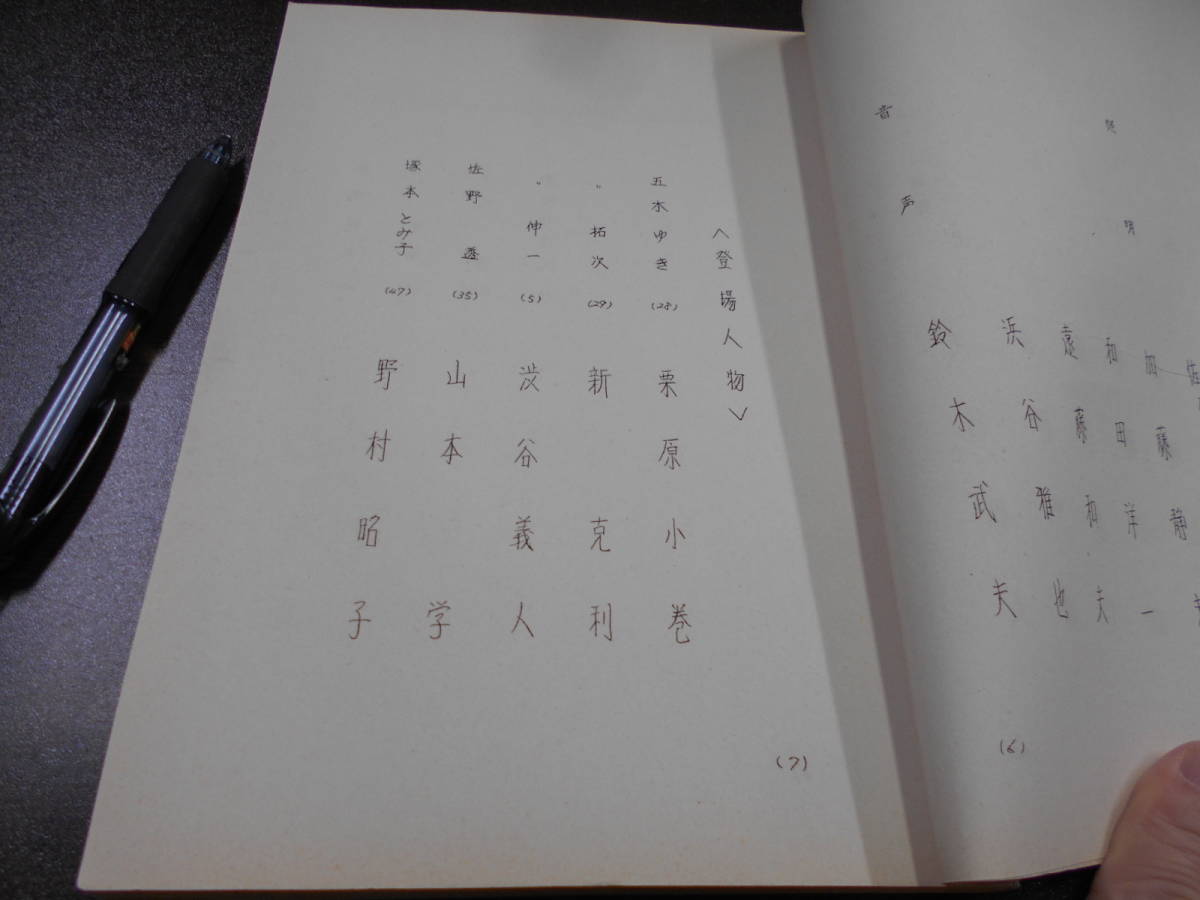 佐藤静
加藤洋一
照明 和田
遠藤和夫
浜谷雅也
音声 鈴木武夫
(6)
<登場人物>
五木ゆき (28) 栗原小巻
〃 拓次 (29) 新克利
〃 伸一 (5) 渋谷義人
佐野透 (35) 山本学
塚本とみ子 (47) 野村昭子
(7)